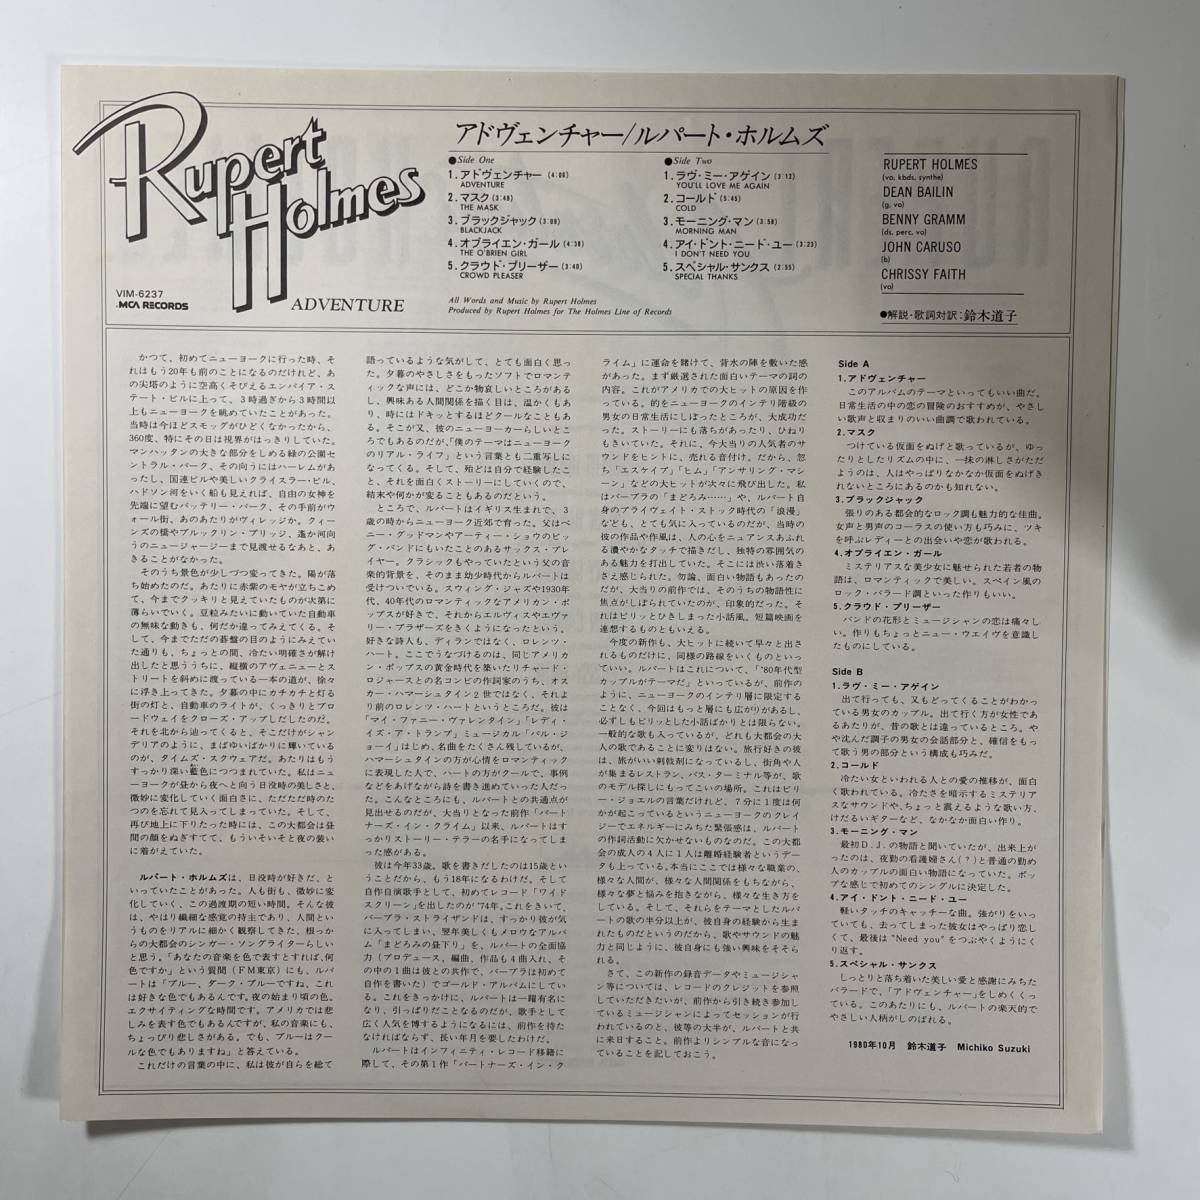 Rupert
Holmes
VIM-6237
MCA RECORDS
ADVENTURE
アドヴェンチャー/ルパート・ホルムズ
●Side One
1.アドヴェンチャー (4:06)
ADVENTURE
2.マスク (3:49)
THE MASK
3.ブラックジャック (3:09)
BLACKJACK
4.オブライエン・ガール (4:38)
THE O'BRIEN GIRL
5.クラウド・プリーザー (3:40)
CROWD PLEASER
●Side Two
1.ラヴ・ミー・アゲイン (3:12)
YOU'LL LOVE ME AGAIN
2.コールド (5:45)
COLD
3.モーニング・マン (3:58)
MORNING MAN
4.アイ・ドント・ニード・ユー (3:23)
I DON'T NEED YOU
5.スペシャル・サンクス (2:55)
SPECIAL THANKS
All Words and Music by Rupert Holmes
Produced by Rupert Holmes for The Holmes Line of Records
RUPERT HOLMES
(vo, kbds, synthe)
DEAN BAILIN
(g, vo)
BENNY GRAMM
(ds, perc, vo)
JOHN CARUSO
(b)
CHRISSY FAITH
(vo)
●解説・歌詞対訳：鈴木道子
かつて、初めてニューヨークに行った時、そ
れはもう20年も前のことになるのだけれど、あ
の尖塔のように空高くそびえるエンパイア・ス
テート・ビルに上って、3時過ぎから3時間以
上もニューヨークを眺めていたことがあった。
当時は今ほどスモッグがひどくなかったから、
360度、特にその日は視界がはっきりしていた。
マンハッタンの大きな部分をしめる緑の公園セ
ントラル・パーク、その向うにはハーレムがあ
ったし、国連ビルや美しいクライスラー・ビル、
ハドソン河をいく船も見えれば、自由の女神を
先端に望むバッテリー・パーク、その手前がウ
ォール街、あのあたりがヴィレッジか。クィー
ンズの橋やブルックリン・ブリッジ、遙か河向
うのニュージャージーまで見渡せるなあと、あ
きることがなかった。
そのうち景色が少しづつ変ってきた。陽が落
ち始めたのだ。あたりに赤紫のモヤが立ちこめ
て、今までクッキリと見えていたものが次第に
薄らいでいく。豆粒みたいに動いていた自動車
の無味な動きも、何だか違ってみえてくる。そ
して、今までただの碁盤の目のようにみえてい
た通りも、ちょっとの間、冷たい明確さが解け
出したと思ううちに、縦横のアヴェニューとス
トリートを斜めに渡っている一本の道が、徐々
に浮き上ってきた。夕暮の中にカチカチと灯る
街の灯と、自動車のライトが、くっきりとブロ
ードウェイをクローズ・アップしだしたのだ。
それを北から辿ってくると、そこだけがシャン
デリアのように、まばゆいばかりに輝いている
のが、タイムズ・スクウェアだ。あたりはもう
すっかり深い藍色につつまれていた。私はニュ
ーヨークが昼から夜へと向う日没時の美しさと、
微妙に変化していく面白さに、ただただ時のた
つのを忘れて見入ってしまっていた。そして、
再び地上に下りたった時には、この大都会は昼
間の顔をぬぎすてて、もういそいそと夜の装い
に着がえていた。
ルパート・ホルムズは、日没時が好きだ、と
いっていたことがあった。人も街も、微妙に変
化していく、この過渡期の短い時間。そんな彼
は、やはり繊細な感覚の持主であり、人間とい
うものをリアルに細かく観察してきた、根っか
らの大都会のシンガー・ソングライターらしい
と思う。「あなたの音楽を色で表すとすれば、何
色ですか」という質問(FM東京)にも、ルパ
ートは「ブルー、ダーク・ブルーですね、これ
は好きな色でもあるんです。夜の始まり頃の色。
エクサイティングな時間です。アメリカでは悲
しみを表す色でもあるんですが、私の音楽にも、
ちょっぴり悲しさがある。でも、ブルーはクー
ルな色でもありますね」と答えている。
これだけの言葉の中に、私は彼が自らを総て
語っているような気がして、とても面白く思っ
た。夕暮のやさしさをもったソフトでロマンテ
ィックな声には、どこか物哀しいところがある
し、興味ある人間関係を描く目は、温かくもあ
り、時にはドキッとするほどクールなこともあ
る。そこが又、彼のニューヨーカーらしいとこ
ろでもあるのだが、「僕のテーマはニューヨーク
のリアル・ライフ」という言葉とも二重写しに
なってくる。そして、殆どは自分で経験したこ
と、それを面白くストーリーにしていくので、
結末や何かが変ることもあるのだという。
ところで、ルパートはイギリス生まれで、3
歳の時からニューヨーク近郊で育った。父はベ
ニー・グッドマンやアーティー・ショウのビッ
グ・バンドにもいたことのあるサックス・プレ
イヤー。クラシックもやっていたという父の音
楽的背景を、そのまま幼少時代からルパートは
受けついでいる。スウィング・ジャズや1930年
代、40年代のロマンティックなアメリカン・ポ
ップスが好きで、それからエルヴィスやエヴァ
リー・ブラザーズをきくようになったという。
好きな詩人も、ディランではなく、ロレンツ・
ハート。ここでうなづけるのは、同じアメリカ
ン・ポップスの黄金時代を築いたリチャード・
ロジャースとの名コンビの作詞家のうち、オス
カー・ハマーシュタイン2世ではなく、それよ
り前のロレンツ・ハートというところだ。彼は
「マイ・ファニー・ヴァレンタイン」「レディ・
イズ・ア・トランプ」ミュージカル「パル・ジ
ョーイ」はじめ、名曲をたくさん残しているが、
ハマーシュタインの方が心情をロマンティック
に表現した人で、ハートの方がクールで、事例
などをあげながら詩を書き進めていった人だっ
た。こんなところにも、ルパートとの共通点が
見出せるのだが、大当りとなった前作「パート
ナーズ・イン・クライム」以来、ルパートはす
っかりストーリー・テラーの名手になってしま
った感がある。
彼は今年33歳。歌を書きだしたのは15歳とい
うことだから、もう18年になるわけだ。そして
自作自演歌手として、初めてレコード「ワイド
スクリーン」を出したのが'74年。これをきいて、
バーブラ・ストライザンドは、すっかり彼が気
に入ってしまい、翌年美しくもメロウなアルバ
ム「まどろみの昼下り」を、ルパートの全面協
力(プロデュース、編曲、作品も4曲入れ、そ
の中の1曲は彼との共作で、バーブラは初めて
自作を書いた)でゴールド・アルバムにしてい
る。これをきっかけに、ルパートは一躍有名に
なり、引っぱりだことなるのだが、歌手として
広く人気を博するようになるには、前作を待た
なければならず、長い年月を要したわけだ。
ルパートはインフィニティ・レコード移籍に
際して、その第1作「パートナーズ・イン・ク
ライム」に運命を賭けて、背水の陣を敷いた感
があった。まず厳選された面白いテーマの詞の
内容。これがアメリカでの大ヒットの原因を作
っている。的をニューヨークのインテリ階級の
男女の日常生活にしぼったところが、大成功だ
った。ストーリーにも落ちがあったり、ひねり
もきいていた。それに、今大当りの人気者のサ
ウンドをヒントに、売れる音付け。だから、忽
ち「エスケイプ」「ヒム」「アンサリング・マシ
ーン」などの大ヒットが次々に飛び出した。私
はバーブラの「まどろみ……」や、ルパート自
身のプライヴェイト・ストック時代の「浪漫」
なども、とても気に入っているのだが、当時の
彼の作品や作風は、人の心をニュアンスあふれ
る濃やかなタッチで描きだし、独特の雰囲気の
ある魅力を打出していた。そこには渋い落着き
さえ感じられた。勿論、面白い物語もあったの
だが、大当りの前作では、そのうちの物語性に
焦点がしぼられていたのが、印象的だった。そ
れはピリッとひきしまった小話風。短篇映画を
連想するものともいえる。
今度の新作も、大ヒットに続いて早々と出さ
れるものだけに、同様の路線をいくものといっ
ていい。ルパートはこれについて、「'80年代型
カップルがテーマだ」といっているが、前作の
ように、ニューヨークのインテリ層に限定する
ことなく、今回はもっと層にも広がりがあるし、
必ずしもピリッとした小話ばかりとは限らない。
一般的な歌も入っているが、どれも大都会の大
人の歌であることに変りはない。旅行好きの彼
は、旅がいい刺戟剤になっているし、街角や人
が集まるレストラン、バス・ターミナル等が、歌
のモデル探しにもってこいの場所。これはビリ
ー・ジョエルの言葉だけれど、7分に1度は何
かが起こっているというニューヨークのクレイ
ジーでエネルギーにみちた緊張感は、ルパート
の作詞活動に欠かせないものなのだ。この大都
会の成人の4人に1人は離婚経験者というデー
タも上っている。本当にここでは様々な職業の、
様々な人間が、様々な人間関係をもちながら、
様々な夢と悩みを抱きながら、様々な生き方を
している。そして、それらをテーマとしたルパ
ートの歌の半分以上が、彼自身の経験から生ま
れたものだというのだから、歌やサウンドの魅
力と同じように、彼自身にも強い興味をそそら
れる。
さて、この新作の録音データやミュージシャ
ン等については、レコードのクレジットを参照
していただきたいが、前作から引き続き参加し
ているミュージシャンによってセッションが行
われているのと、彼等の大半が、ルパートと共
に来日すること。前作よりシンプルな音になっ
ていることを記しておこう。
Side A
1.アドヴェンチャー
このアルバムのテーマといってもいい曲だ。
日常生活の中の恋の冒険のおすすめが、やさし
い歌声と収まりのいい曲調で歌われている。
2.マスク
つけている仮面をぬげと歌っているが、ゆっ
たりとしたリズムの中に、一抹の淋しさがただ
ようのは、人はやっぱりなかなか仮面をぬげき
れないところにあるのかも知れない。
3.ブラックジャック
張りのある都会的なロック調も魅力的な佳曲。
女声と男声のコーラスの使い方も巧みに、ツキ
を呼ぶレディーとの出会いや恋が歌われる。
4.オブライエン・ガール
ミステリアスな美少女に魅せられた若者の物
語は、ロマンティックで美しい。スペイン風の
ロック・バラード調といった作りもいい。
5.クラウド・プリーザー
バンドの花形とミュージシャンの恋は痛々し
い。作りもちょっとニュー・ウエイヴを意識し
たものにしている。
Side B
1.ラヴ・ミー・アゲイン
出て行っても、又もどってくることがわかっ
ている男女のカップル。出て行く方が女性であ
るあたりが、昔の歌とは違っているところ。や
や沈んだ調子の男女の会話部分と、確信をもっ
て歌う男の部分という構成も巧みだ。
2.コールド
冷たい女といわれる人との愛の推移が、面白
く歌われている。冷たさを暗示するミステリア
スなサウンドや、ちょっと震えるような歌い方、
けだるいギターなど、なかなか面白い作り。
3.モーニング・マン
最初D.J.の物語と聞いていたが、出来上が
ったのは、夜勤の看護婦さん(?)と普通の勤め
人のカップルの面白い物語になっていた。ポッ
プな感じで初めてのシングルに決定した。
4.アイ・ドント・ニード・ユー
軽いタッチのキャッチーな曲。強がりをいっ
ていても、去ってしまった彼女はやっぱり恋し
くて、最後は"Need you"をつぶやくようにく
り返す。
5.スペシャル・サンクス
しっとりと落ち着いた美しい愛と感謝にみちた
バラードで、「アドヴェンチャー」をしめくくっ
ている。このあたりにも、ルパートの楽天的で
やさしい人柄がしのばれる。
1980年10月　鈴木道子　Michiko Suzuki